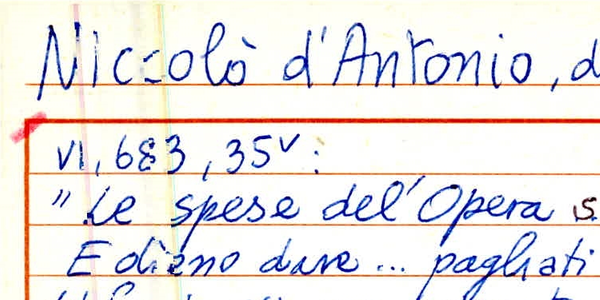 Niccolò d'Antonio, d
VI, 683, 35v:
"Le spese dell'Opera s
E dieno dare ... paghati